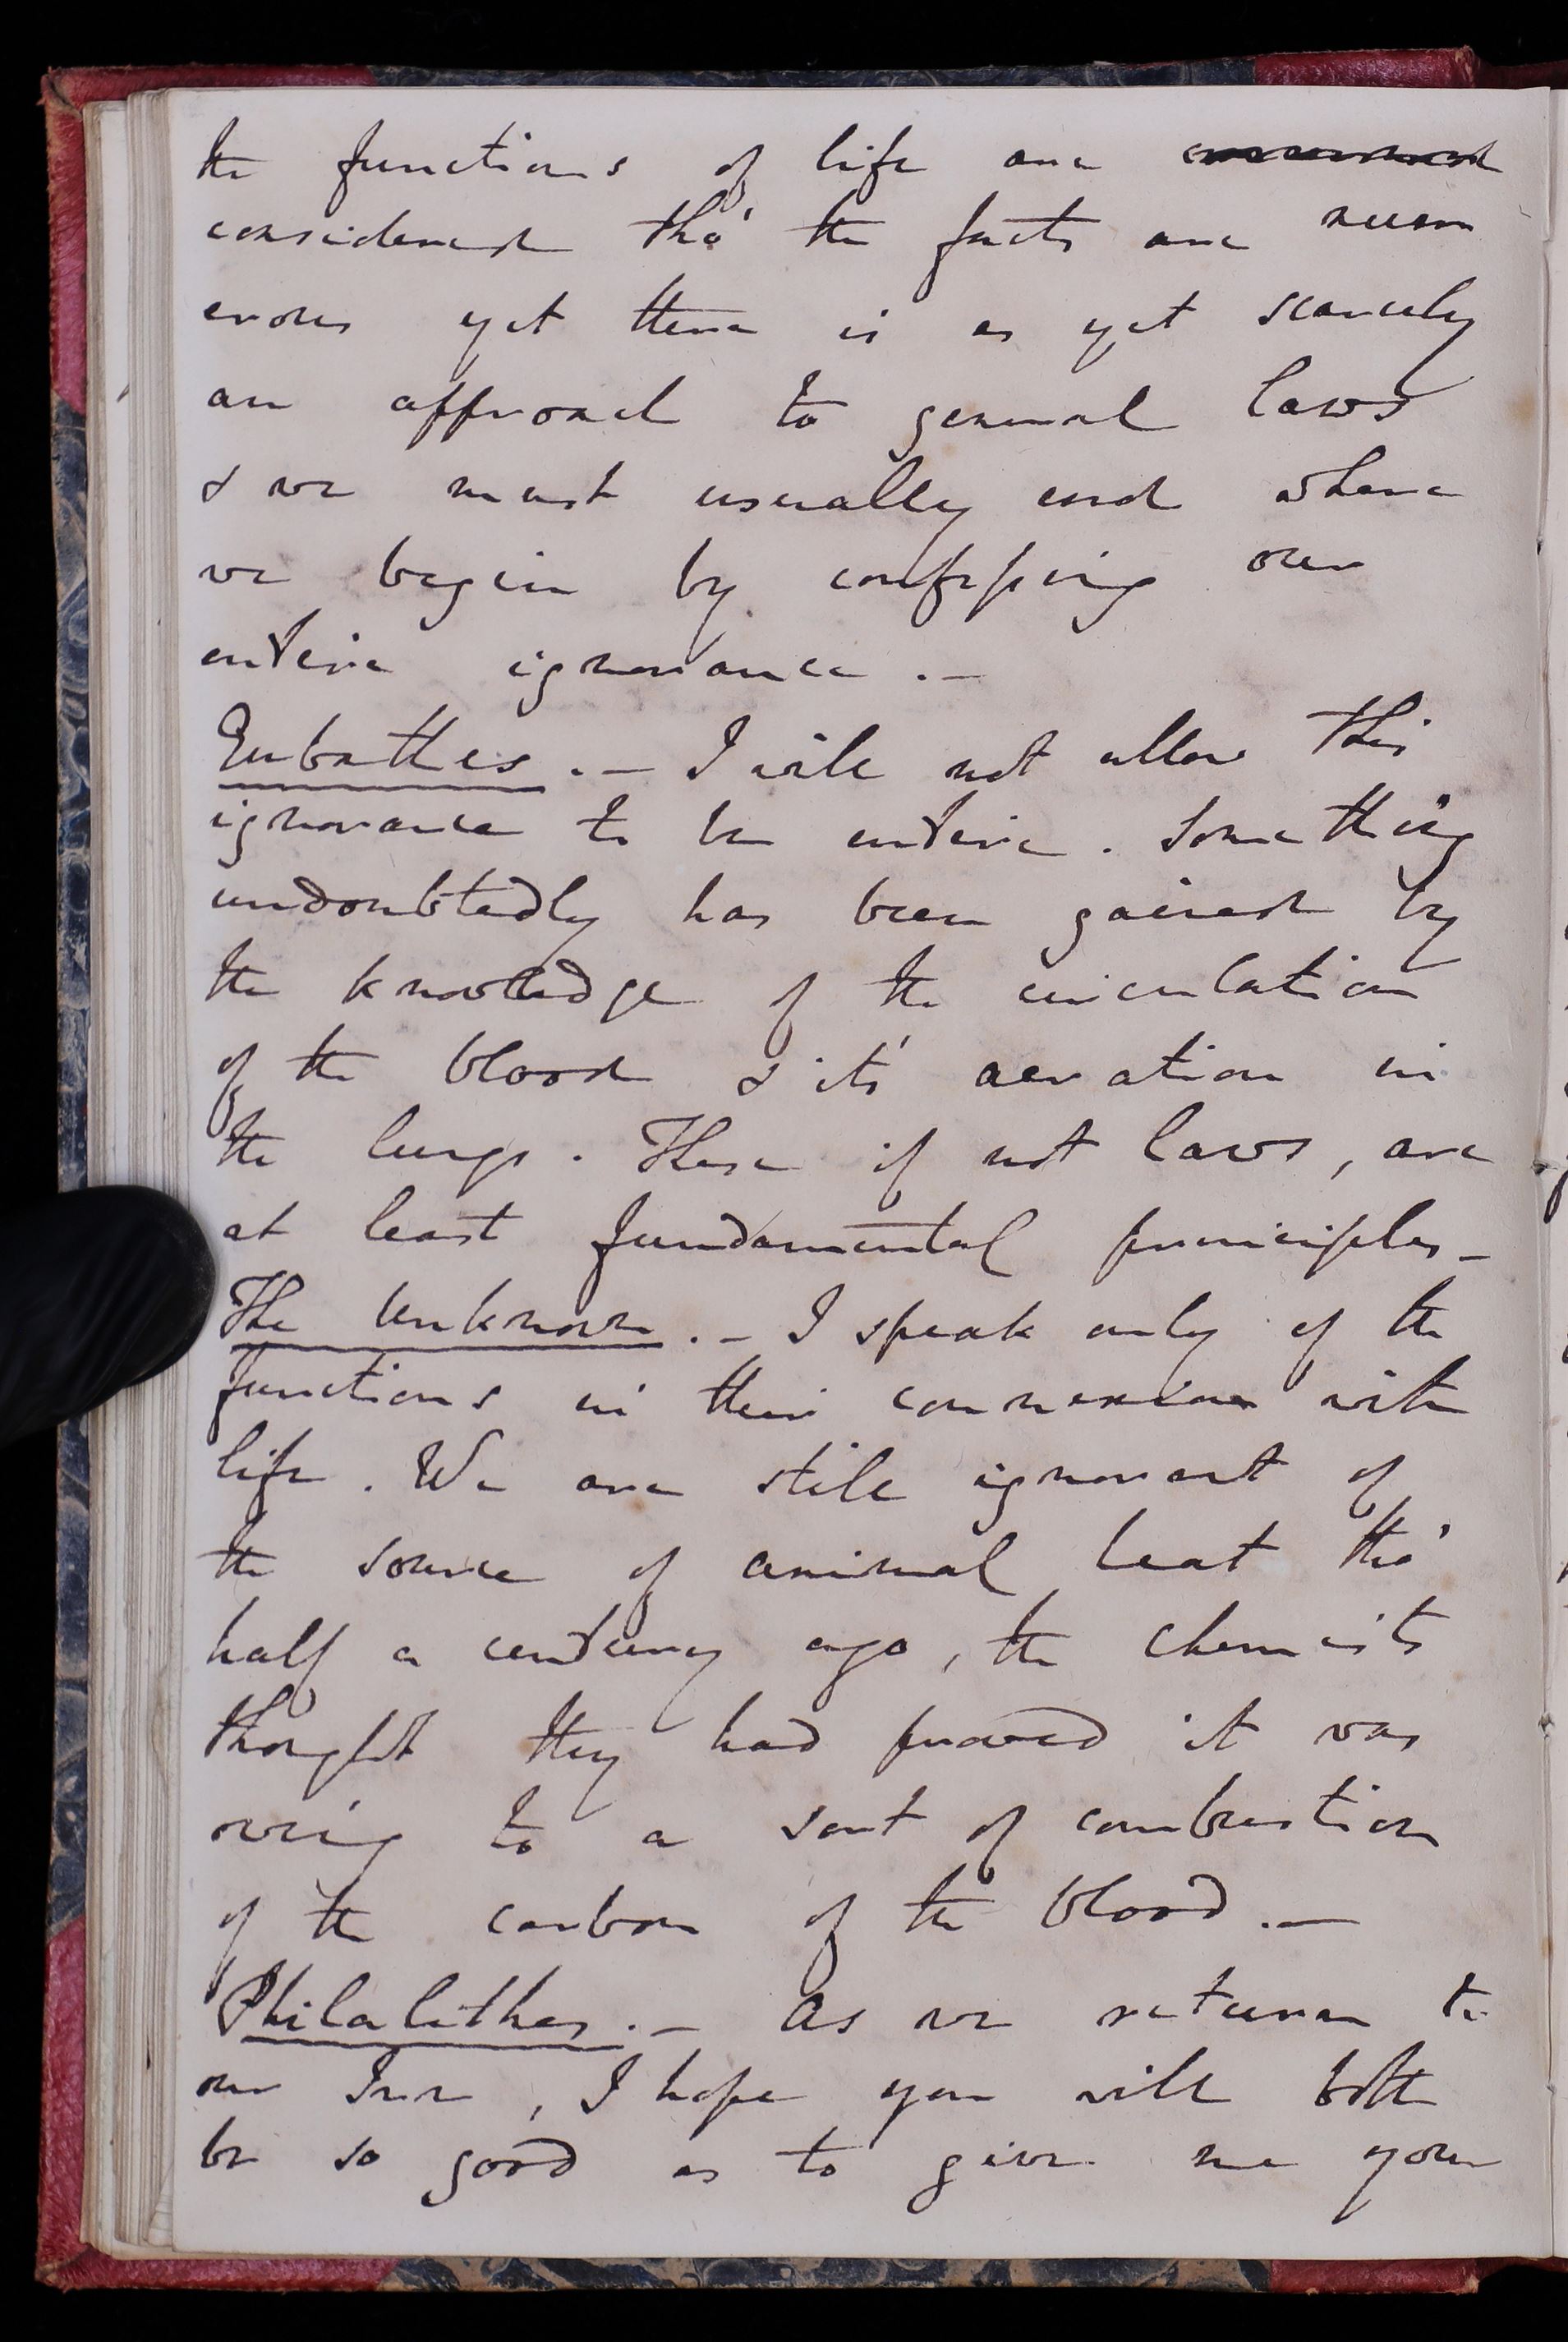 the functions of life are
considered tho' the facts are num
erous yet there is as yet scarcely
an approach to general laws
& we must usually end where
we begin by confessing our
entire ignorance .—
Eubathes .— I will not allow this
ignorance to be entire . Something
undoubtedly has been gained by
the knowledge of the circulation
of the blood & it's aeration in
the lungs . These if not laws , are
at least fundamental principles —
The Unknown .— I speak only of the
functions in their connexion with
life . We are still ignorant of
the source of animal heat tho'
half a century ago , the chemists
thought they had proved it was
owing to a sort of combustion
of the carbon of the blood .—
Philalethes .— As we return to
our Inn , I hope you will both
be so good as to give me your